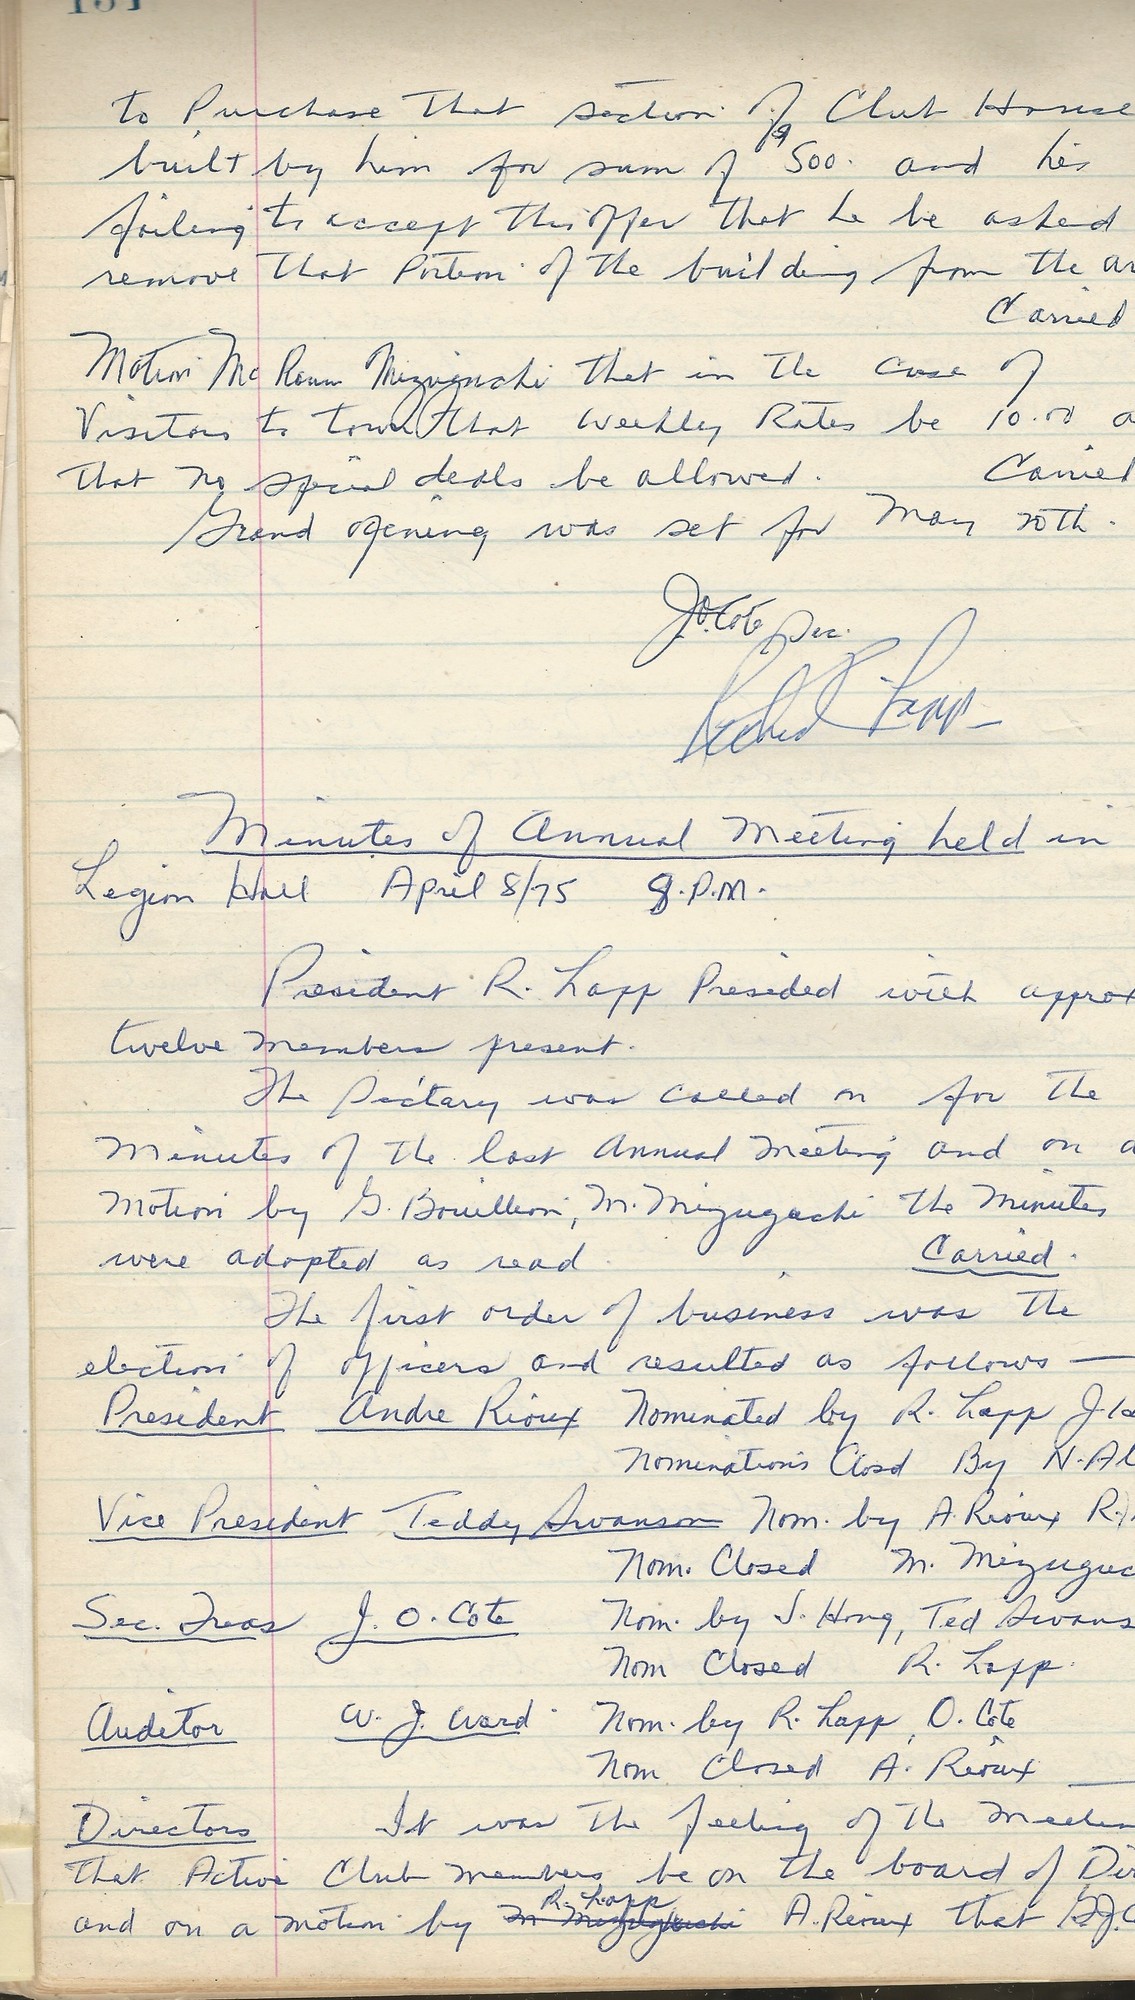 to Purchase that section of Club House
built by him for sum of $500. and his
failing to accept this offer that he be asked
remove that Portion of the building from the ar
Carried
Motion Mc Mizuguchi that in the case of
Visitors to town that weekly Rates be 10.00 a
that no special deals be allowed. Carried
Grand opening was set for May 20th.
J.O. Cote Sec.
Lapp
Minutes of Annual Meeting held in
Legion Hall April 8/75 8.P.M.
President R. Lapp Presided with approx
twelve members present.
The Sectary was called on for the
Minutes of the last Annual Meeting and on a
Motion by G. Bouillion, M. Mizuguchi the Minutes
were adopted as read. Carried.
The first order of business was the
election of officers and resulted as follows —
President Andre Rioux Nominated by R. Lapp J
Nominations Closd By N. Al
Vice President Teddy Swanson Nom. by A. Rioux R.
Nom. Closed M. Mizuguc
Sec. Treas J. O. Cote Nom. by J. Hong, Ted Swans
Nom Closed R. Lapp.
Auditor W. J. Ward. Nom. by R. Lapp, O. Cote
Nom Closed A. Rioux —
Directors It was the feeling of the Meetin
that Active Club members be on the board of Dir
R. Lapp
and on a motion by M Mizuguchi A. Rioux that